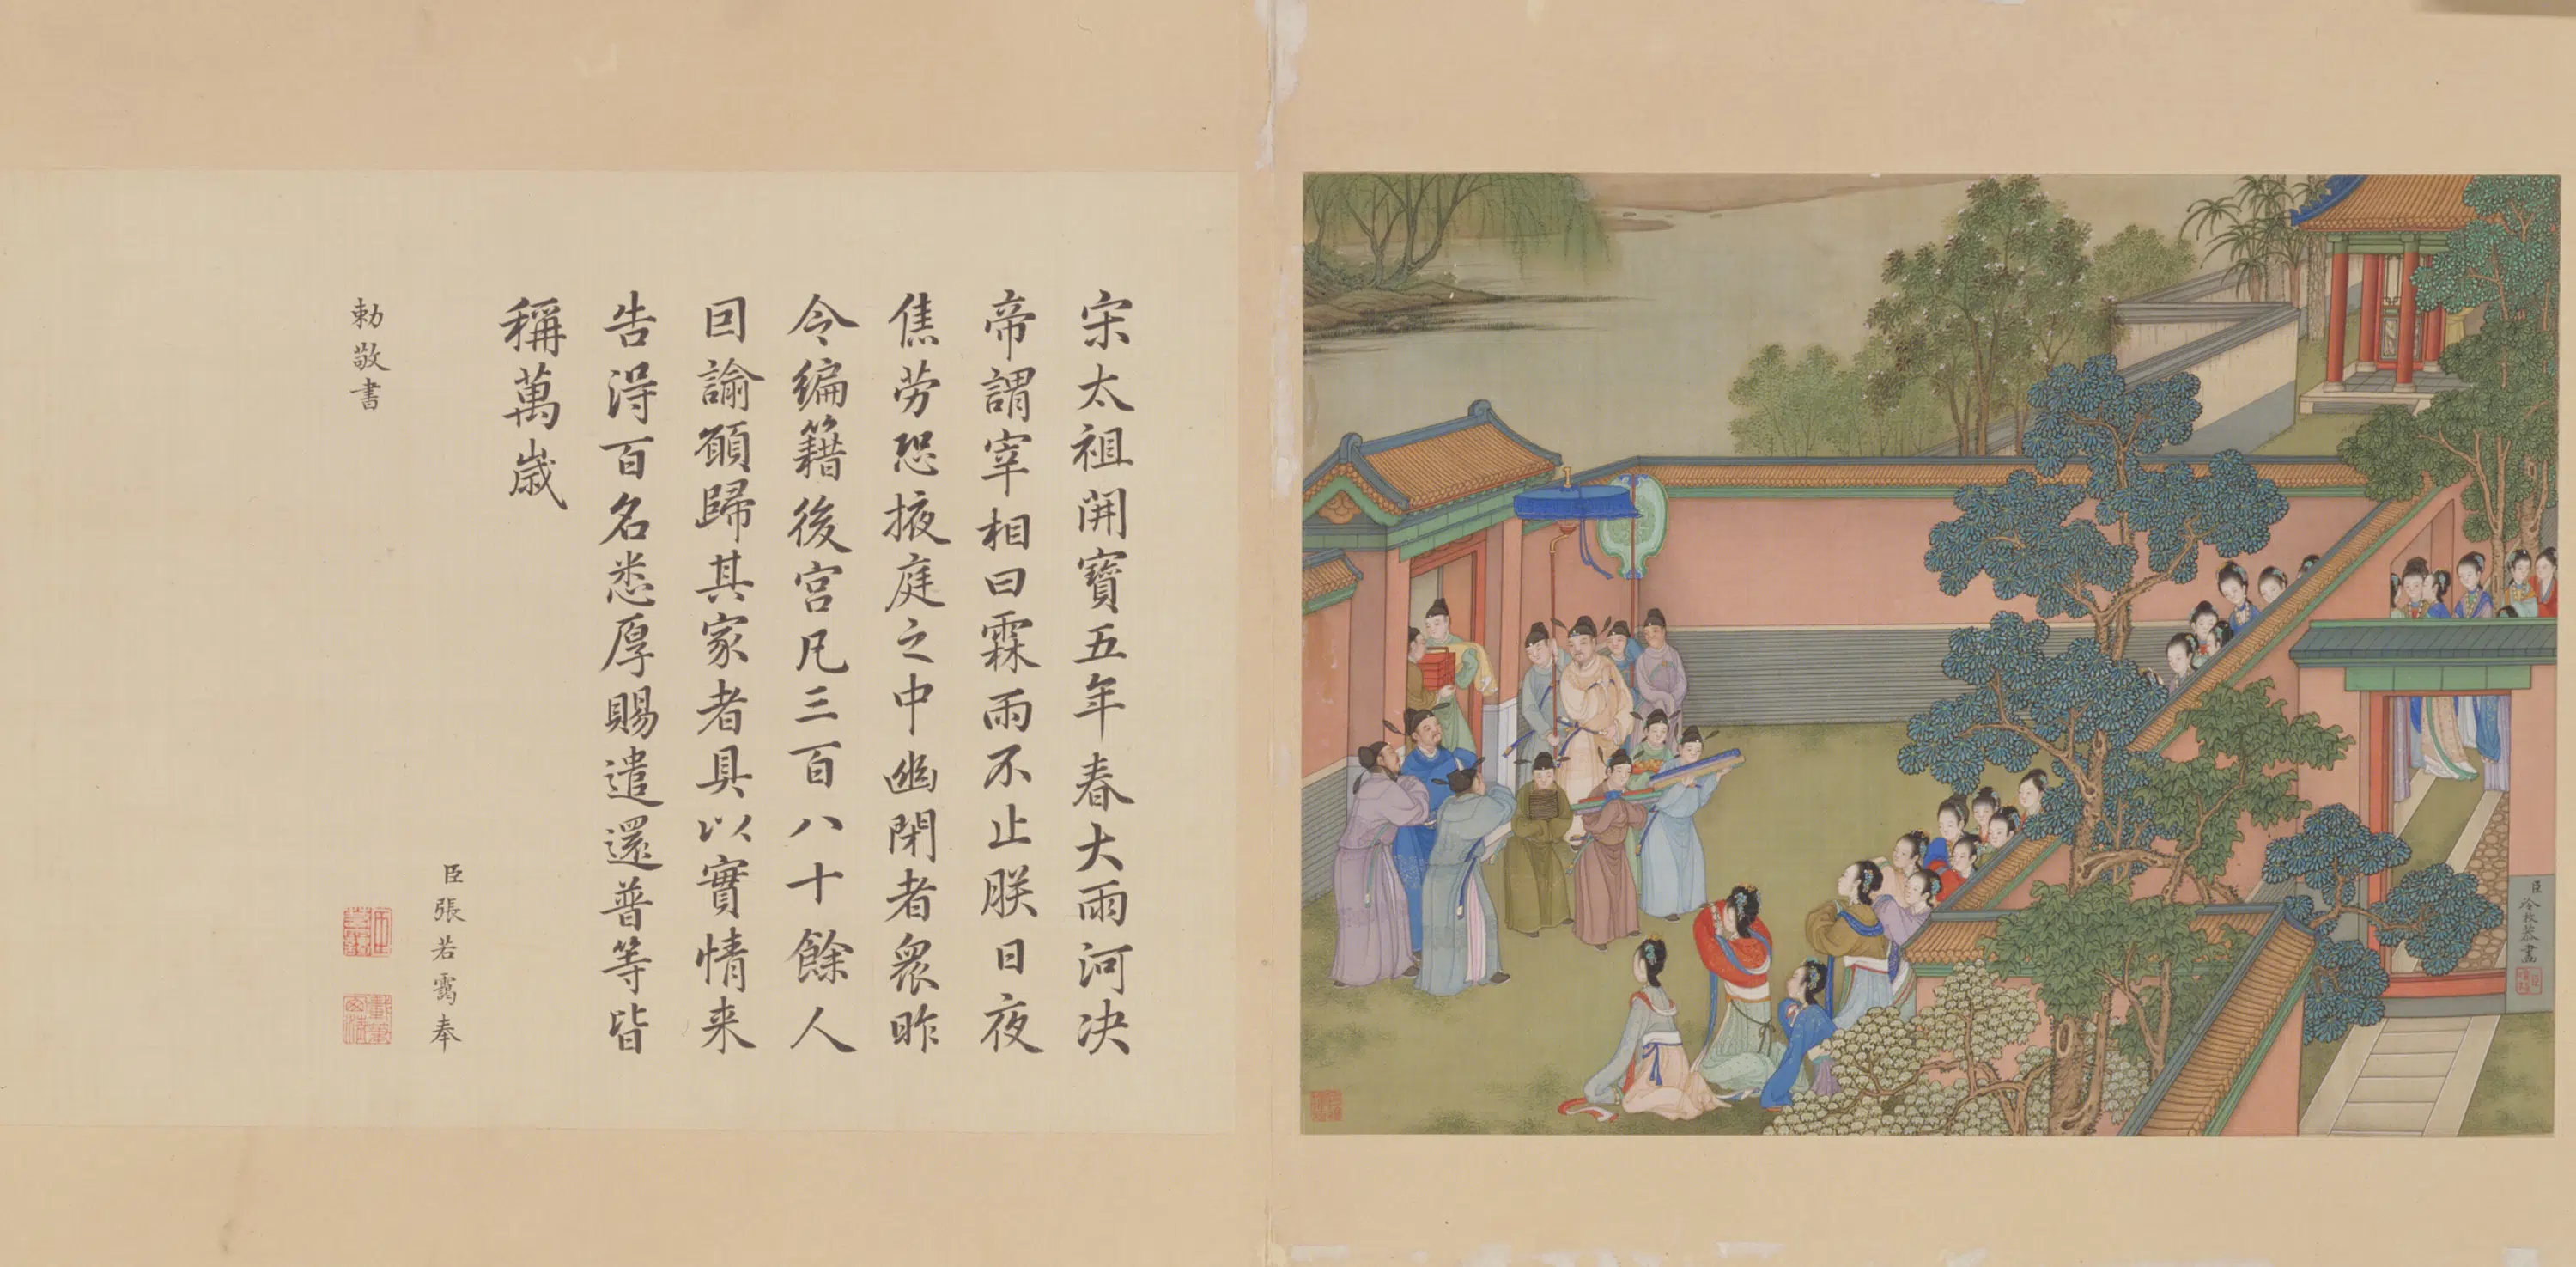 臣冷枚恭畫
宋太祖開寶五年春大雨河決
帝謂宰相曰霖雨不止朕日夜
焦勞恐掖庭之中幽閉者衆昨
令編籍後宮凡三百八十餘人
回諭願歸其家者具以實情来
告淂百名悉厚賜遣還普等皆
稱萬歲
臣張若靄奉
勅敬書